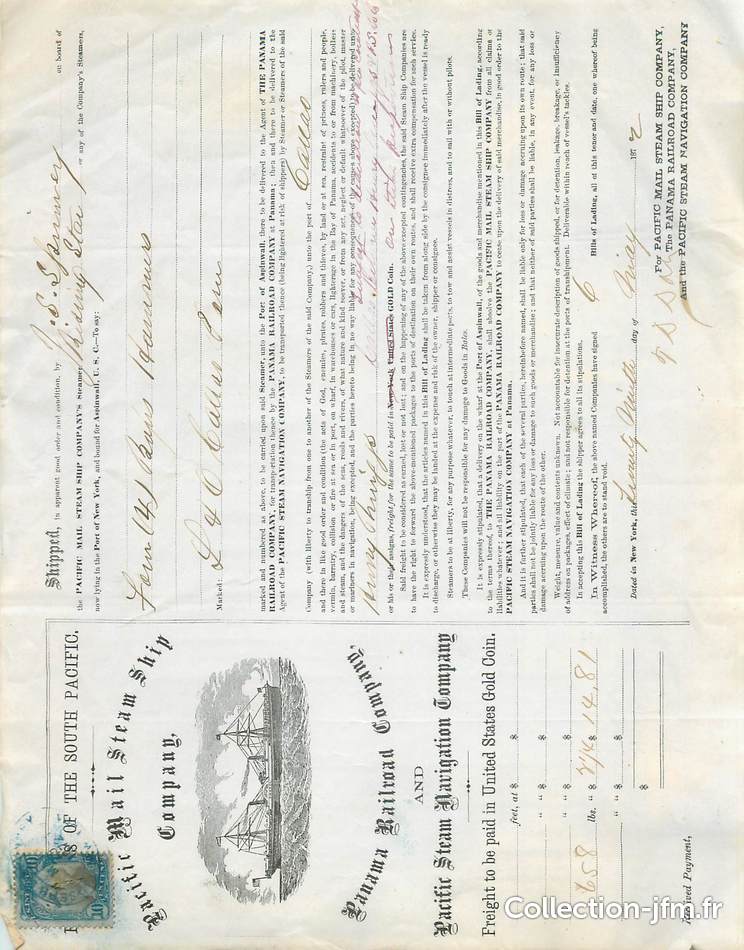 OF THE SOUTH PACIFIC.
Pacific Mail Steam Ship
Company,
Panama Railroad Company,
AND
Pacific Steam Navigation Company
Freight to be paid in United States Gold Coin.
feet, at $ $
" " $ $
658 lbs. " $ 2¼ 14.81
" " $ $
$
Received Payment,
Shipped, in apparent good order and condition, by on board of
the PACIFIC MAIL STEAM SHIP COMPANY'S Steamer, Rising Star or any of the Company's Steamers,
now lying in the Port of New York, and bound for Aspinwall, U. S. C.—To say:
Four 4
Marked:
marked and numbered as above, to be carried upon said Steamer, unto the Port of Aspinwall, there to be delivered to the Agent of THE PANAMA
RAILROAD COMPANY, for transportation thence by the PANAMA RAILROAD COMPANY to the Port of Panama; then and there to be delivered to the
Agent of the PACIFIC STEAM NAVIGATION COMPANY, to be transported thence (being lightered at risk of shippers) by Steamer or Steamers of the said
Company (with liberty to tranship from one to another of the Steamers of the said Company,) unto the port of Callao
and there in like good order and condition (the acts of God, enemies, pirates, robbers and thieves, by land or at sea, restraint of princes, rulers and people,
vermin, barratry, collision or fire at sea or in port, on wharf, in warehouses or cars, lighterage in the Bay of Panama, accidents to or from machinery, boilers
and steam, and the dangers of the seas, roads and rivers, of what nature and kind soever, or from any act, neglect or default whatsoever of the pilot, master
or mariners in navigation, being excepted, and the parties hereto being in no way liable for any consequences of the causes above excepted) to be delivered unto
Henry
or his or their assigns, freight for the same to be paid in New York United States GOLD Coin.
Said freight to be considered as earned, lost or not lost; and on the happening of any of the above excepted contingencies, the said Steam Ship Companies are
to have the right to forward the above-mentioned packages to the ports of destination on their own routes, and shall receive extra compensation for such service.
It is expressly understood, that the articles named in this Bill of Lading shall be taken from along side by the consignee immediately after the vessel is ready
to discharge, or otherwise they may be landed at the expense and risk of the owner, shipper or consignee.
Steamers to be at liberty, for any purpose whatever, to touch at intermediate ports, to tow and assist vessels in distress, and to sail with or without pilots.
These Companies will not be responsible for any damage to Goods in Bales.
It is expressly stipulated, that a delivery on the wharf at the Port of Aspinwall, of the goods and merchandise mentioned in this Bill of Lading, according
to the terms thereof, to THE PANAMA RAILROAD COMPANY, shall absolve the PACIFIC MAIL STEAM SHIP COMPANY from all claims or
liabilities whatever; and all liability on the part of the PANAMA RAILROAD COMPANY to cease upon the delivery of said merchandise, in good order to the
PACIFIC STEAM NAVIGATION COMPANY at Panama.
And it is further stipulated, that each of the several parties, hereinbefore named, shall be liable only for loss or damage accruing upon its own route; that said
parties shall not be jointly liable for any loss or damage to such goods or merchandise; and that neither of said parties shall be liable, in any event, for any loss or
damage accruing upon the route of the other.
Weight, measure, value and contents unknown. Not accountable for inaccurate description of goods shipped, or for detention, leakage, breakage, or insufficiency
of address on packages, effect of climate; and not responsible for detention at the ports of transhipment. Deliverable within reach of vessel's tackles.
In accepting this Bill of Lading the shipper agrees to all its stipulations.
In Witness Whereof, the above named Companies have signed 6 Bills of Lading, all of this tenor and date, one whereof being
accomplished, the others are to stand void.
Dated in New York, this day of 1872
For PACIFIC MAIL STEAM SHIP COMPANY,
The PANAMA RAILROAD COMPANY,
And the PACIFIC STEAM NAVIGATION COMPANY
Collection-jfm.fr